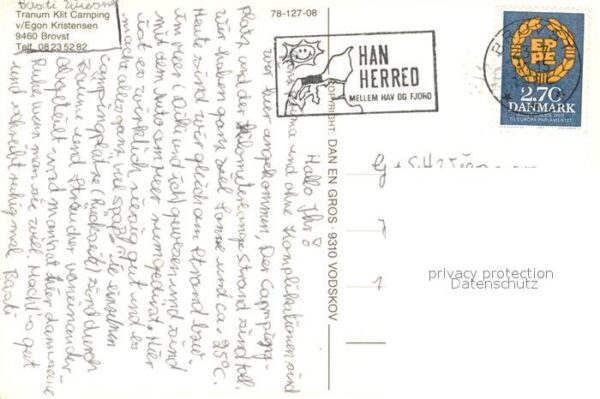 Tranum Klit Camping
v/Egon Kristensen
9460 Brovst
Telf. 08 23 52 82
78-127-08
HAN
HERRED
MELLEM HAV OG FJORD
2.70
DANMARK
COPYRIGHT: DAN EN GROS · 9310 VODSKOV
Hallo Ihr!
und ohne Komplikationen sind
wir angekommen. Der Camping-
platz und der kilometerlange Strand sind toll.
Wir haben ganz viel Sonne und ca. 25°C.
Heute sind wir gleich am Strand bzw.
im Meer (Dirk und ich) gewesen und sind
mit dem Auto am Meer rumgedüst. Hier
ist es wirklich riesig gut und es
macht allen ganz viel Spaß. Die einzelnen
Campingplätze (Rückseite) sind durch
Bäume und Sträucher voneinander
abgeteilt und man hat hier dann seine
Ruhe wenn man sie will. Macht's gut
und
privacy protection
Datenschutz